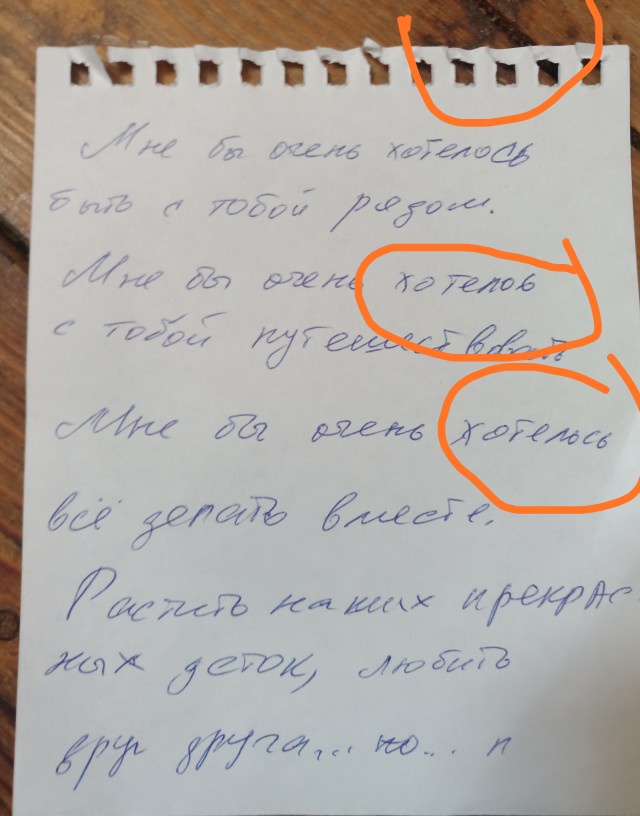 Мне бы очень хотелось
быть с тобой рядом.
Мне бы очень хотелов
с тобой путешествовать
Мне бы очень хотельсь
всё делать вместе.
Растить наших прекрас-
ных деток, любить
друг друга... но... п